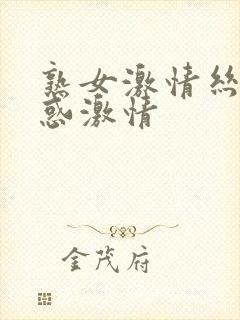 熟女激情絲
惑激情
金茂府